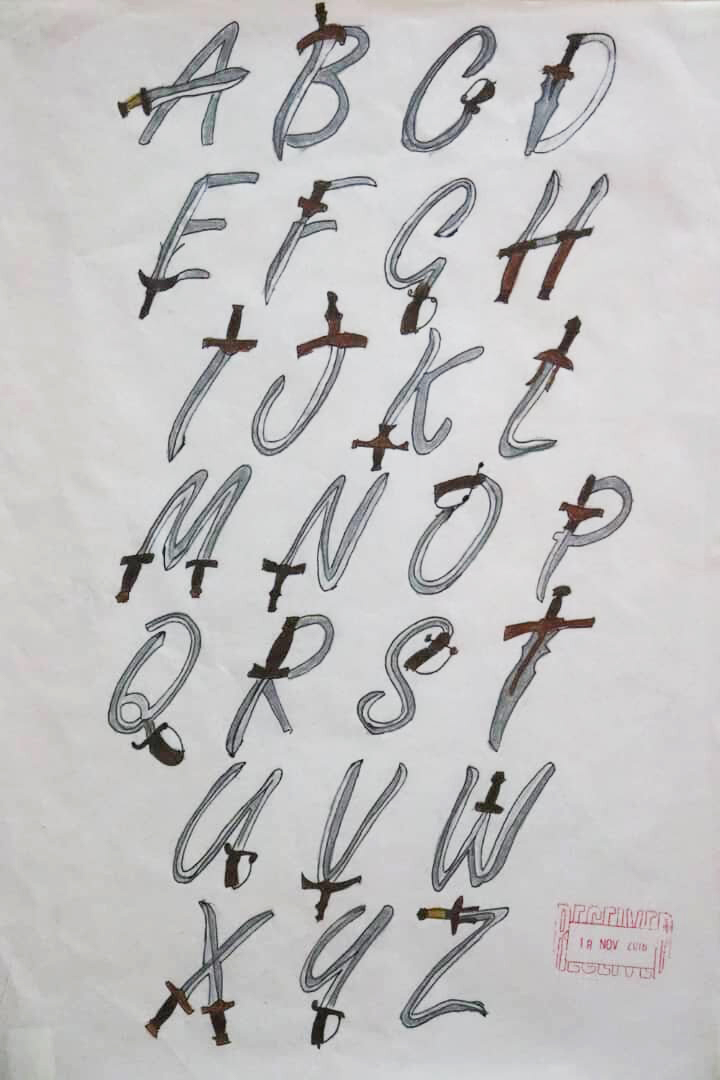 A B C D
E F G H
I J K L
M N O P
Q R S T
U V W
X Y Z
RECEIVED
18 NOV 2016
RECEIVED